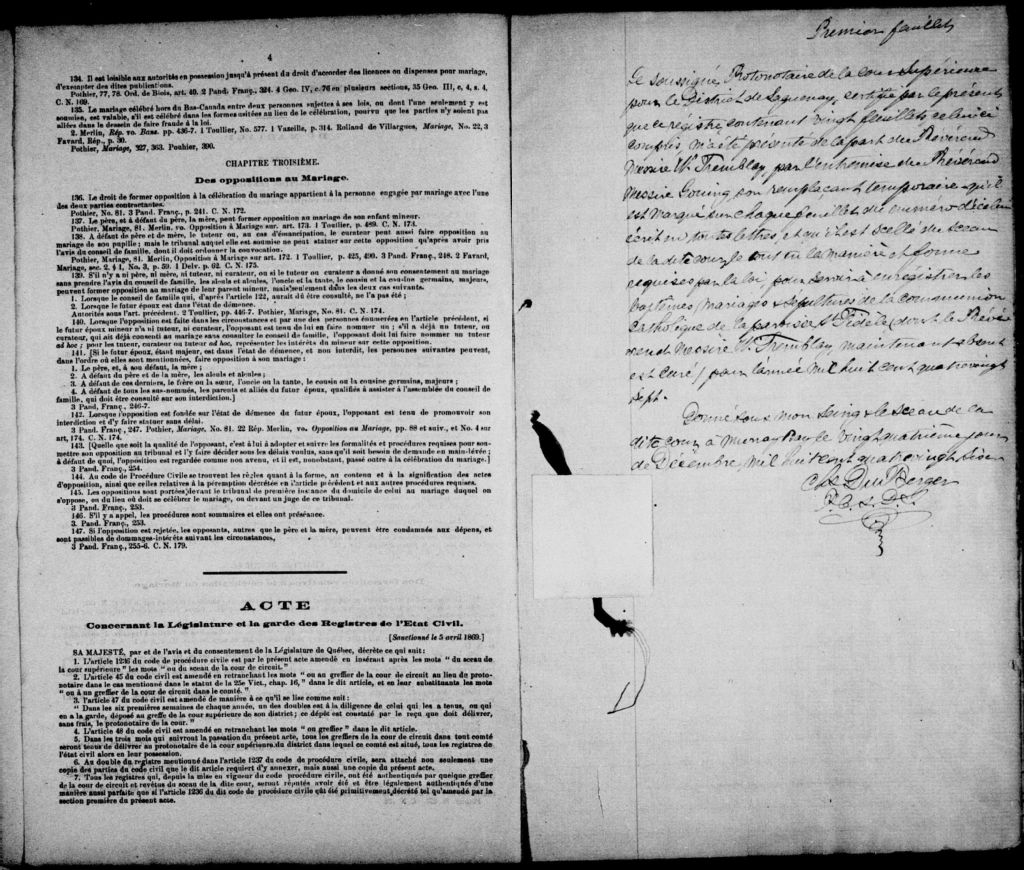 4
134. Il est loisible aux autorités en possession jusqu'à présent du droit d'accorder des licences ou dispenses pour mariage,
d'exempter des dites publications.
Pothier, 77, 78. Ord. de Blois, art. 40. 2 Pand. Franç., 324. 4 Geo. IV, c. 76 en plusieurs sections, 35 Geo. III, c, 4, s. 4,
C. N. 169.
135. Le mariage célébré hors du Bas-Canada entre deux personnes sujettes à ses lois, ou dont l'une seulement y est
soumise, est valable, s'il est célébré dans les formes usitées au lieu de la célébration, pourvu que les parties n'y soient pas
allées dans le dessein de faire fraude à la loi.
2. Merlin, Rép. vo. Bans. pp. 436-7. 1 Toullier, No. 577. 1 Vazeille, p. 314. Rolland de Villargues, Mariage, No. 22, 3
Favard, Rép., p. 30.
Pothier, Mariage, 327, 363. Pouhier, 390.
CHAPITRE TROISIÈME.
Des oppositions au Mariage.
136. Le droit de former opposition à la célébration du mariage appartient à la personne engagée par mariage avec l'une
des deux parties contractantes.
Pothier, No. 81. 3 Pand. Franç., p. 241. C. N. 172.
137. Le père, et à défaut du père, la mère, peut former opposition au mariage de son enfant mineur.
Pothier, Mariage, 81. Merlin, vo. Opposition à Mariage sur. art. 173. 1 Toullier, p. 489. C. N. 173.
138. A défaut de père et de mère, le tuteur ou, au cas d'émancipation, le curateur peut aussi faire opposition au
mariage de son pupille; mais le tribunal auquel elle est soumise ne peut statuer sur cette opposition qu'après avoir pris
l'avis du conseil de famille, dont il doit ordonner la convocation.
Pothier, Mariage, 81. Merlin, Opposition à Mariage sur art. 172. 1 Toullier, p. 425, 490. 3 Pand. Franç., 248. 2 Favard,
Mariage, sec. 2, § 1, No. 3, p. 59. 1 Delv. p. 62. C. N. 175.
139. S'il n'y a ni père, ni mère, ni tuteur, ni curateur, ou si le tuteur ou curateur a donné son consentement au mariage
sans prendre l'avis du conseil de famille, les aïeuls et aïeules, l'oncle et la tante, le cousin et la cousine germains, majeurs,
peuvent former opposition au mariage de leur parent mineur, mais seulement dans les deux cas suivants.
1. Lorsque le conseil de famille qui, d'après l'article 122, aurait dû être consulté, ne l'a pas été;
2. Lorsque le futur époux est dans l'état de démence.
Autorités sous l'art. précédent. 2 Toullier, pp. 446-7. Pothier, Mariage, No. 81. C. N. 174.
140. Lorsque l'opposition est faite dans les circonstances et par une des personnes énumérées en l'article précédent, si
le futur époux mineur n'a ni tuteur, ni curateur, l'opposant est tenu de lui en faire nommer un; s'il a déjà un tuteur, ou
curateur, qui ait déjà consenti au mariage sans consulter le conseil de famille, l'opposant doit lui faire nommer un tuteur
ad hoc; pour les tuteur, curateur ou tuteur ad hoc, représenter les intérêts du mineur sur cette opposition.
141. [Si le futur époux, étant majeur, est dans l'état de démence, et non interdit, les personnes suivantes peuvent,
dans l'ordre où elles sont mentionnées, faire opposition à son mariage:
1. Le père, et, à son défaut, la mère;
2. A défaut du père et de la mère, les aïeuls et aïeules;
3. A défaut de ces derniers, le frère ou la sœur, l'oncle ou la tante, le cousin ou la cousine germains, majeurs;
4. A défaut de tous les sus-nommés, les parents et alliés du futur époux, qualifiés à assister à l'assemblée du conseil de
famille, qui doit être consulté sur son interdiction.]
3 Pand. Franç., 246-7.
142. Lorsque l'opposition est fondée sur l'état de démence du futur époux, l'opposant est tenu de promouvoir son
interdiction et d'y faire statuer sans délai.
3 Pand. Franç., 247. Pothier, Mariage, No. 81. 22 Rép Merlin, vo. Opposition au Mariage, pp. 88 et suiv., et No. 4 sur
art. 174. C. N. 174.
143. [Quelle que soit la qualité de l'opposant, c'est à lui à adopter et suivre les formalités et procédures requises pour sou-
mettre son opposition au tribunal et l'y faire décider sous les délais voulus, sans qu'il soit besoin de demande en main-levée;
à défaut de quoi, l'opposition est regardée comme non avenu, et il est, nonobstant, passé outre à la célébration du mariage.]
3 Pand. Franç., 254.
144. Au code de Procédure Civile se trouvent les règles quant à la forme, au contenu et à la signification des actes
d'opposition, ainsi que celles relatives à la péremption décrétée en l'article précédent et aux autres procédures requises.
145. Les oppositions sont portées devant le tribunal de première instance du domicile de celui au mariage duquel on
s'oppose, ou du lieu où doit se célébrer le mariage, ou devant un juge de ce tribunal.
3 Pand. Franç., 253.
146. S'il y a appel, les procédures sont sommaires et elles ont préséance.
3. Pand. Franç., 253.
147. Si l'opposition est rejetée, les opposants, autres que le père et la mère, peuvent être condamnés aux dépens, et
sont passibles de dommages-intérêts suivant les circonstances,
3 Pand. Franç., 255-6. C. N. 179.
ACTE
Concernant la Législature et la garde des Registres de l'Etat Civil.
[Sanctionné le 5 avril 1869.]
SA MAJESTÉ, par et de l'avis et du consentement de la Législature de Québec, décrète ce qui suit:
1. L'article 1236 du code de procédure civile est par le présent acte amendé en insérant après les mots " du sceau de
la cour supérieure " les mots " ou du sceau de la cour de circuit."
2. L'article 45 du code civil est amendé en retranchant les mots " ou au greffier de la cour de circuit au lieu de proto-
notaire dans le cas mentionné dans le statut de la 25e Vict., chap. 16," dans le dit article, et en leur substituants les mots
" ou à un greffier de la cour de circuit dans le comté."
3. l'article 47 du code civil est amendé de manière à ce qu'il se lise comme suit:
" Dans les six premières semaines de chaque année, un des doubles est à la diligence de celui qui les a tenus, ou qui
en a la garde, déposé au greffe de la cour supérieure de son district; ce dépôt est constaté par le reçu que doit délivrer,
sans frais, le protonotaire de la cour."
4. L'article 48 du code civil est amendé en retranchant les mots " ou greffier " dans le dit article.
5. Dans les trois mois qui suivront la passation du présent acte, tous les greffiers de la cour de circuit dans tout comté
seront tenus de délivrer au protonotaire de la cour supérieure du district dans lequel ce comté est situé, tous les registres de
l'état civil alors en leur possession.
6. Au double du registre mentionné dans l'article 1237 du code de procédure civile, sera attaché non seulement une
copie des parties du code civil que le dit article requiert d'y annexer, mais aussi une copie du présent acte.
7. Tous les registres qui, depuis la mise en vigueur du code procédure civile, ont été authentiqués par quelque greffier
de la cour de circuit et revêtus du sceau de la dite cour, seront réputés avoir été et être légalement authentiqués d'une
manière aussi parfaite que si l'article 1236 du dit code de procédure civile eût été primitivement décrété tel qu'amendé par la
section première du présent acte.
Premier feuillet
Le soussigné, Protonotaire de la cour Supérieure
pour le District de Saguenay, certifie par le présent
que ce régistre contenant vingt feuillets celui-ci
compris, m'a été présenté de la part du Révérend
Messire W. Tremblay, par l'entremise du Révérend
Messire Goring son remplaçant temporaire qu'il
est marqué sur chaque feuillet du numéro d'icelui
écrit en toutes lettres, et qu'il est scellé du sceau
de la dite cour, le tout en la manière et forme
requises par la loi, pour servir à enregistrer les
baptêmes, mariages & sépultures de la communion
Catholique de la paroisse St Fidèle, (dont le Révé-
rend Messire W. Tremblay, maintenant absent
est curé) pour l'année mil huit cent quatrevingt
sept.
Donné sous mon seing & le sceau de la
dite cour à Murray Bay le vingt quatrième jour
de Décembre, mil huit cent quatrevingt six
Chs Du Berger
P. C. S. D. S.